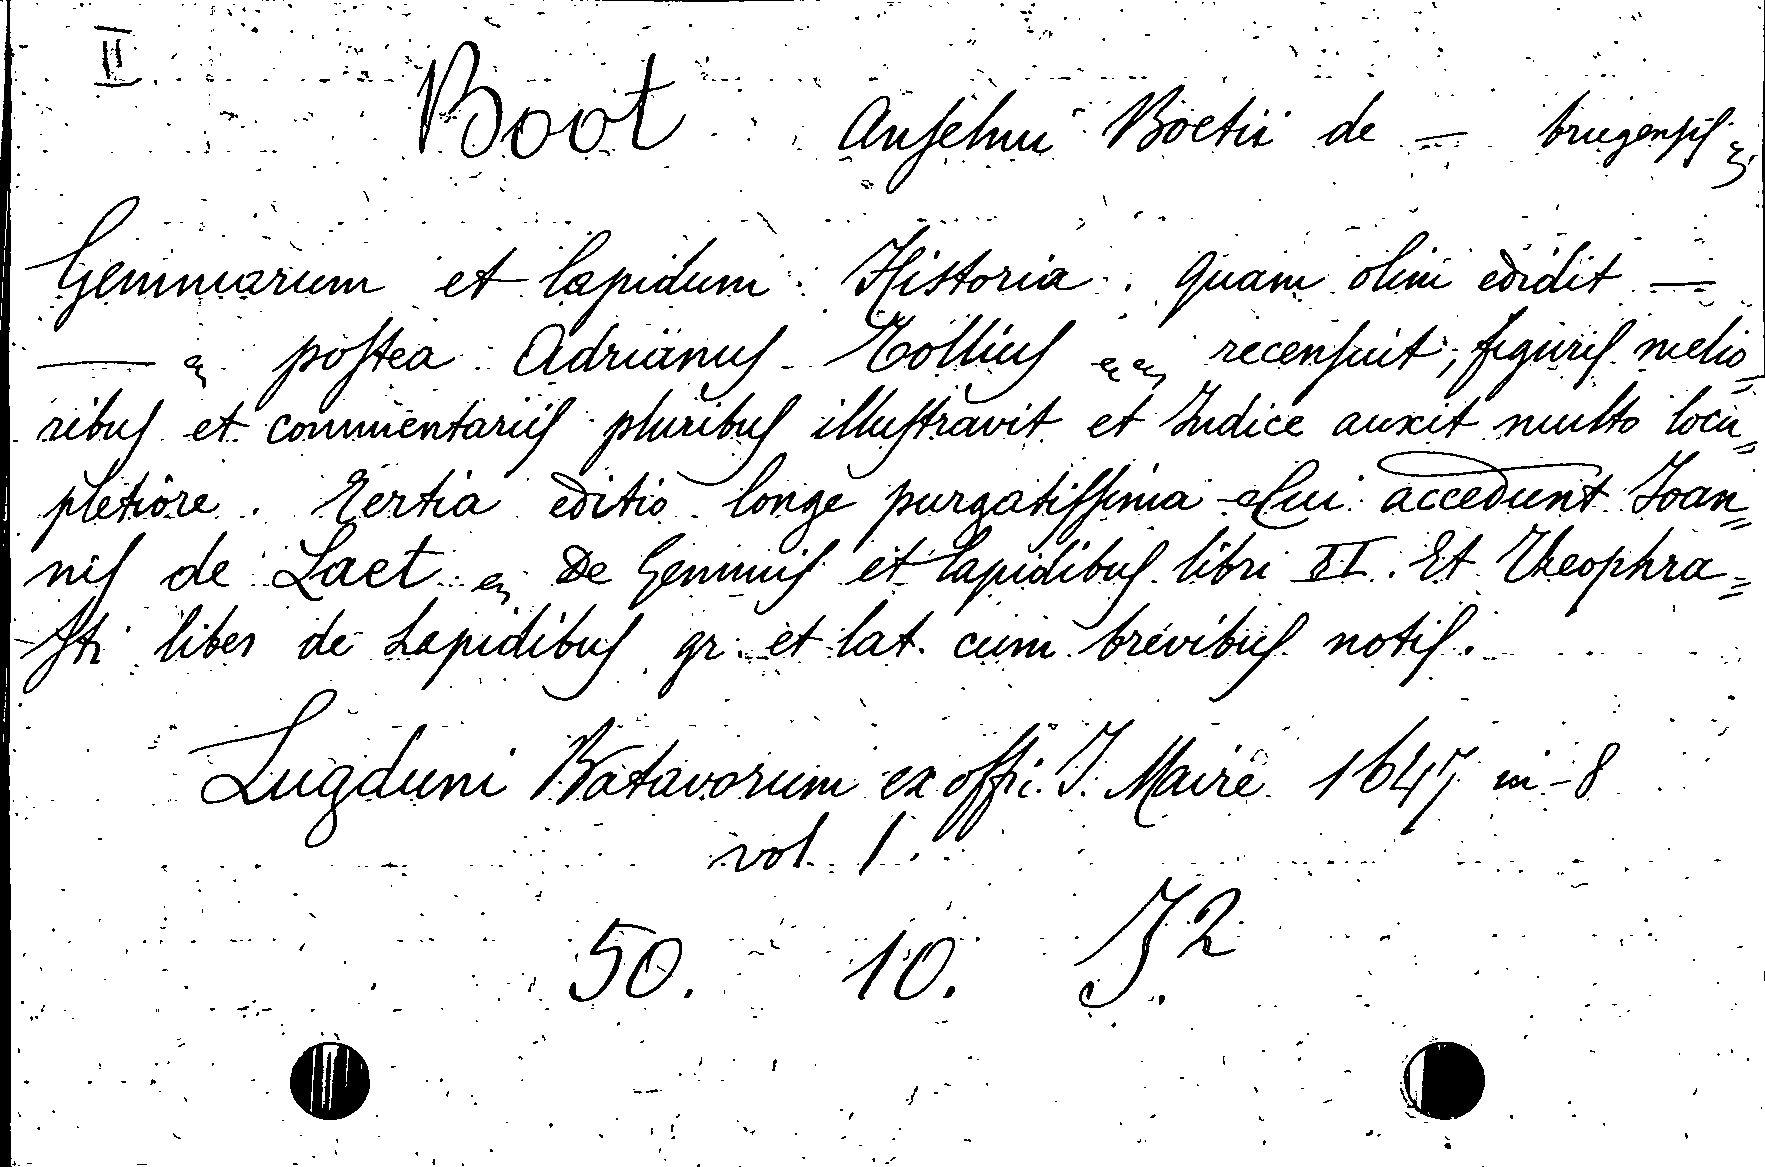 II
Boot Anselmi Boetii de — brugensis &.
Gemmarum et lapidum Historia. quam olim edidit —
— & postea Adrianus Tollius && recensuit; figuris melio=
ribus et commentariis pluribus illustravit et Indice auxit multo locu=
pletiore. Tertia editio longe purgatissima Cui accedunt Joan=
nis de Laet & De Gemmis et Lapidibus libri II. Et Theophra=
sti liber de Lapidibus gr. et lat. cum brevibus notis.
Lugduni Batavorum ex offi. J. Maire 1647 in-8
vol 1.
50. 10. J.2